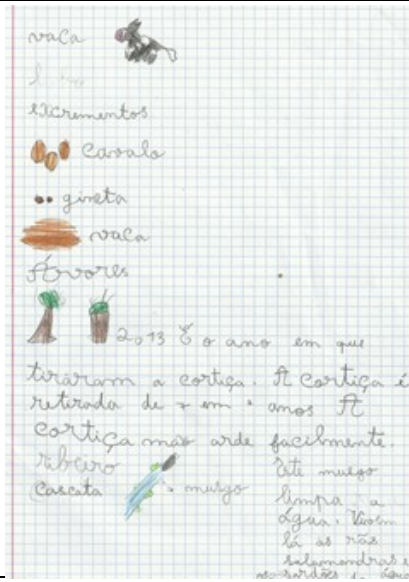 vaca
excrementos
cavalo
gineta
vaca
Árvores
2013 É o ano em que
tiraram a cortiça. A cortiça é
retirada de + em • anos A
cortiça não arde facilmente.
ribeiro
Cascata
musgo
Este musgo
limpa a
água. Vivem
lá as rãs
salamandras e